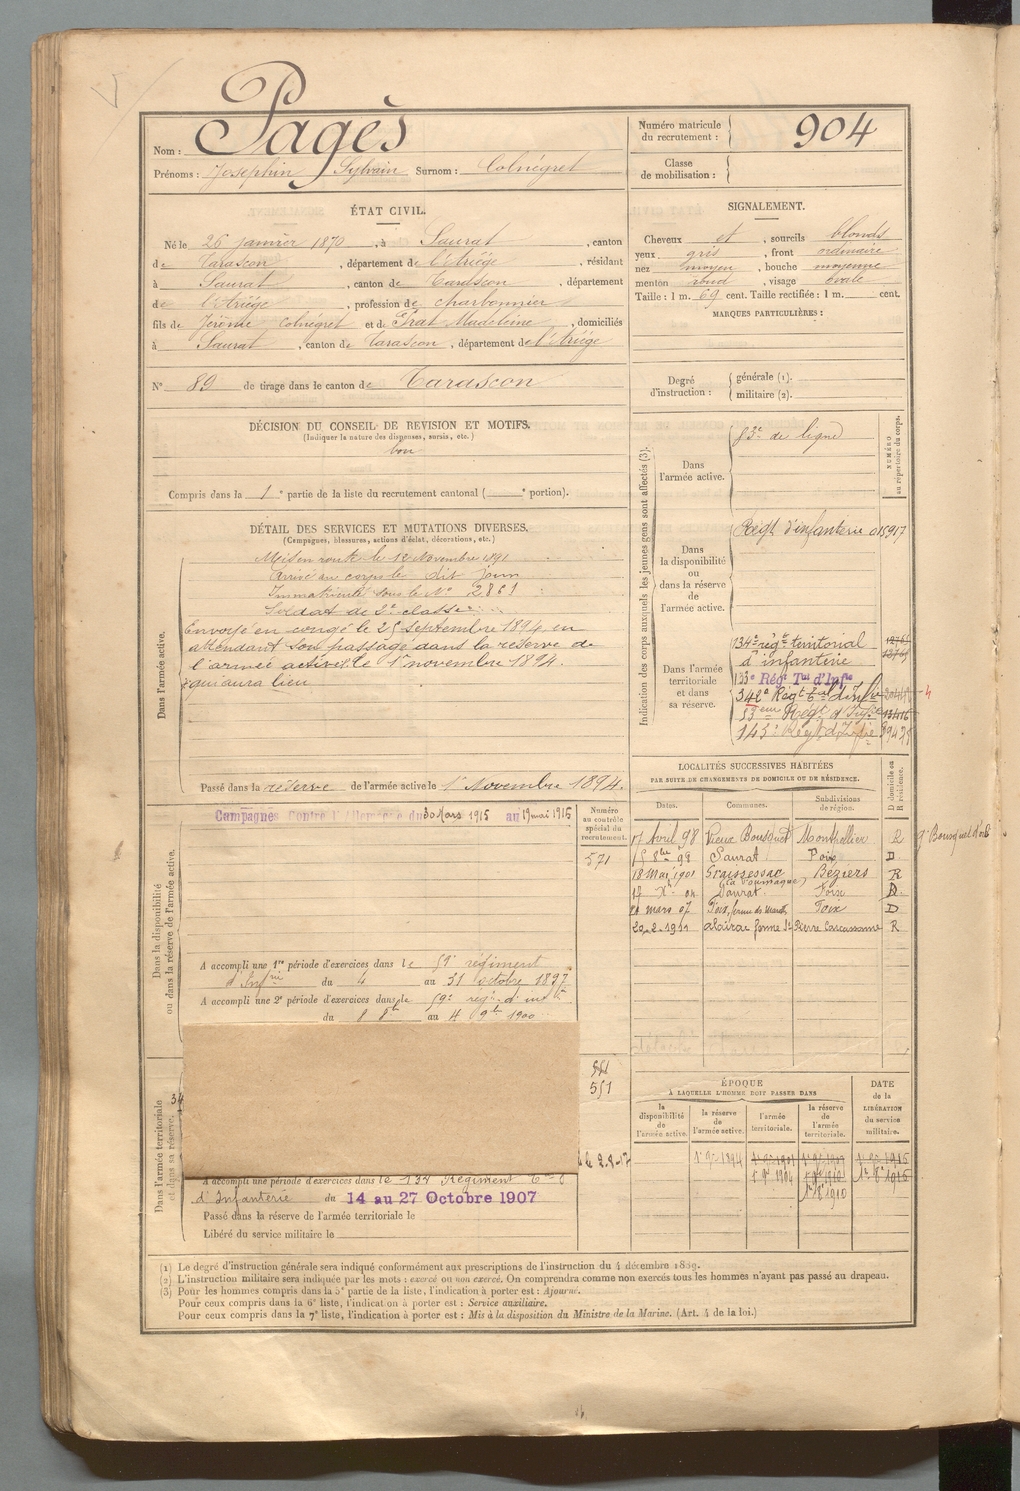 Nom : Pagès
Prénoms : Josephin Sylvain Surnom : Colnégret
Numéro matricule du recrutement : 904
Classe de mobilisation :
ÉTAT CIVIL.
Né le 26 janvier 1870, à Saurat, canton
de Tarascon, département de l'Ariège, résidant
à Saurat, canton de Tarascon, département
de l'Ariège, profession de charbonnier
fils de Jérôme Colnégret et de Prat Madeleine, domiciliés
à Saurat, canton de Tarascon, département de l'Ariège
N° 89 de tirage dans le canton de Tarascon
SIGNALEMENT.
Cheveux et, sourcils blonds
yeux gris, front ordinaire
nez moyen, bouche moyenne
menton rond, visage ovale
Taille : 1 m. 69 cent. Taille rectifiée : 1 m. cent.
MARQUES PARTICULIÈRES :
Degré d'instruction : générale (1).
militaire (2).
DÉCISION DU CONSEIL DE REVISION ET MOTIFS.
(Indiquer la nature des dispenses, sursis, etc.)
bon
Compris dans la 1e partie de la liste du recrutement cantonal ( e portion).
DÉTAIL DES SERVICES ET MUTATIONS DIVERSES.
(Campagnes, blessures, actions d'éclat, décorations, etc.)
Dans l'armée active.
Mis en route le 12 Novembre 1891
Arrivé au corps le dit jour
Immatriculé sous le N° 2861
Soldat de 2e classe
Envoyé en congé le 25 septembre 1894 en
attendant son passage dans la réserve de
l'armée active le 1er novembre 1894.
qui aura lieu
Passé dans la réserve de l'armée active le 1er Novembre 1894.
Indication des corps auxquels les jeunes gens sont affectés (3).
NUMÉRO au répertoire du corps.
Dans l'armée active.
83e de ligne
Dans la disponibilité ou dans la réserve de l'armée active.
Régt d'infanterie 015917
Dans l'armée territoriale et dans sa réserve.
134e régt territorial
d'infanterie
133e Régt Tal d'Infie
342e Régt
53eme Régt d'Infie 13416
143e Régt d'Infie
LOCALITÉS SUCCESSIVES HABITÉES
PAR SUITE DE CHANGEMENTS DE DOMICILE OU DE RÉSIDENCE.
D domicile ou R résidence.
Dates. Communes. Subdivisions de région.
17 Avril 98 Vieux Bousquet Montpellier R
15 8bre 98 Saurat Foix D
18 Mai 1901 Graissessac Béziers R
Saurat Foix D
mars 07 Foix, Foix D
20-2-1911 Alairac ferme St Pierre Carcassonne R
Dans la disponibilité ou dans la réserve de l'armée active.
Campagnes Contre l'Allemagne du 30 Mars 1915 au 19 mai 1916
Numéro au contrôle spécial du recrutement.
571
A accompli une 1re période d'exercices dans le 59e régiment
d'Infrie du 4 au 31 octobre 1897
A accompli une 2e période d'exercices dans le 59e régt d'infie
du 8 8bre au 4 9bre 1900
Dans l'armée territoriale et dans sa réserve.
34
551
A accompli une période d'exercices dans le 134 Régiment
d'Infanterie du 14 au 27 Octobre 1907
Passé dans la réserve de l'armée territoriale le
Libéré du service militaire le
ÉPOQUE
À LAQUELLE L'HOMME DOIT PASSER DANS
la disponibilité de l'armée active.
la réserve de l'armée active.
l'armée territoriale.
la réserve de l'armée territoriale.
DATE de la LIBÉRATION du service militaire.
1er 9bre 1894
(1) Le degré d'instruction générale sera indiqué conformément aux prescriptions de l'instruction du 4 décembre 1889.
(2) L'instruction militaire sera indiquée par les mots : exercé ou non exercé. On comprendra comme non exercés tous les hommes n'ayant pas passé au drapeau.
(3) Pour les hommes compris dans la 5e partie de la liste, l'indication à porter est : Ajourné.
Pour ceux compris dans la 6e liste, l'indication à porter est : Service auxiliaire.
Pour ceux compris dans la 7e liste, l'indication à porter est : Mis à la disposition du Ministre de la Marine. (Art. 4 de la loi.)